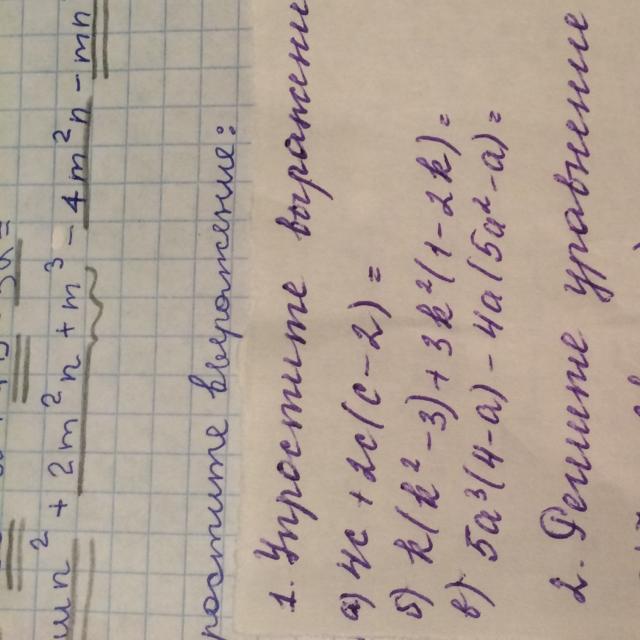 mn² + 2m²n + m³ - 4m²n - mn
ростите выражение:
1. Упростите выражени
а) 4c + 2c(c - 2) =
б) k(k² - 3) + 3k²(1 - 2k) =
в) 5a³(4 - a) - 4a(5a² - a) =
2. Решите уравнение